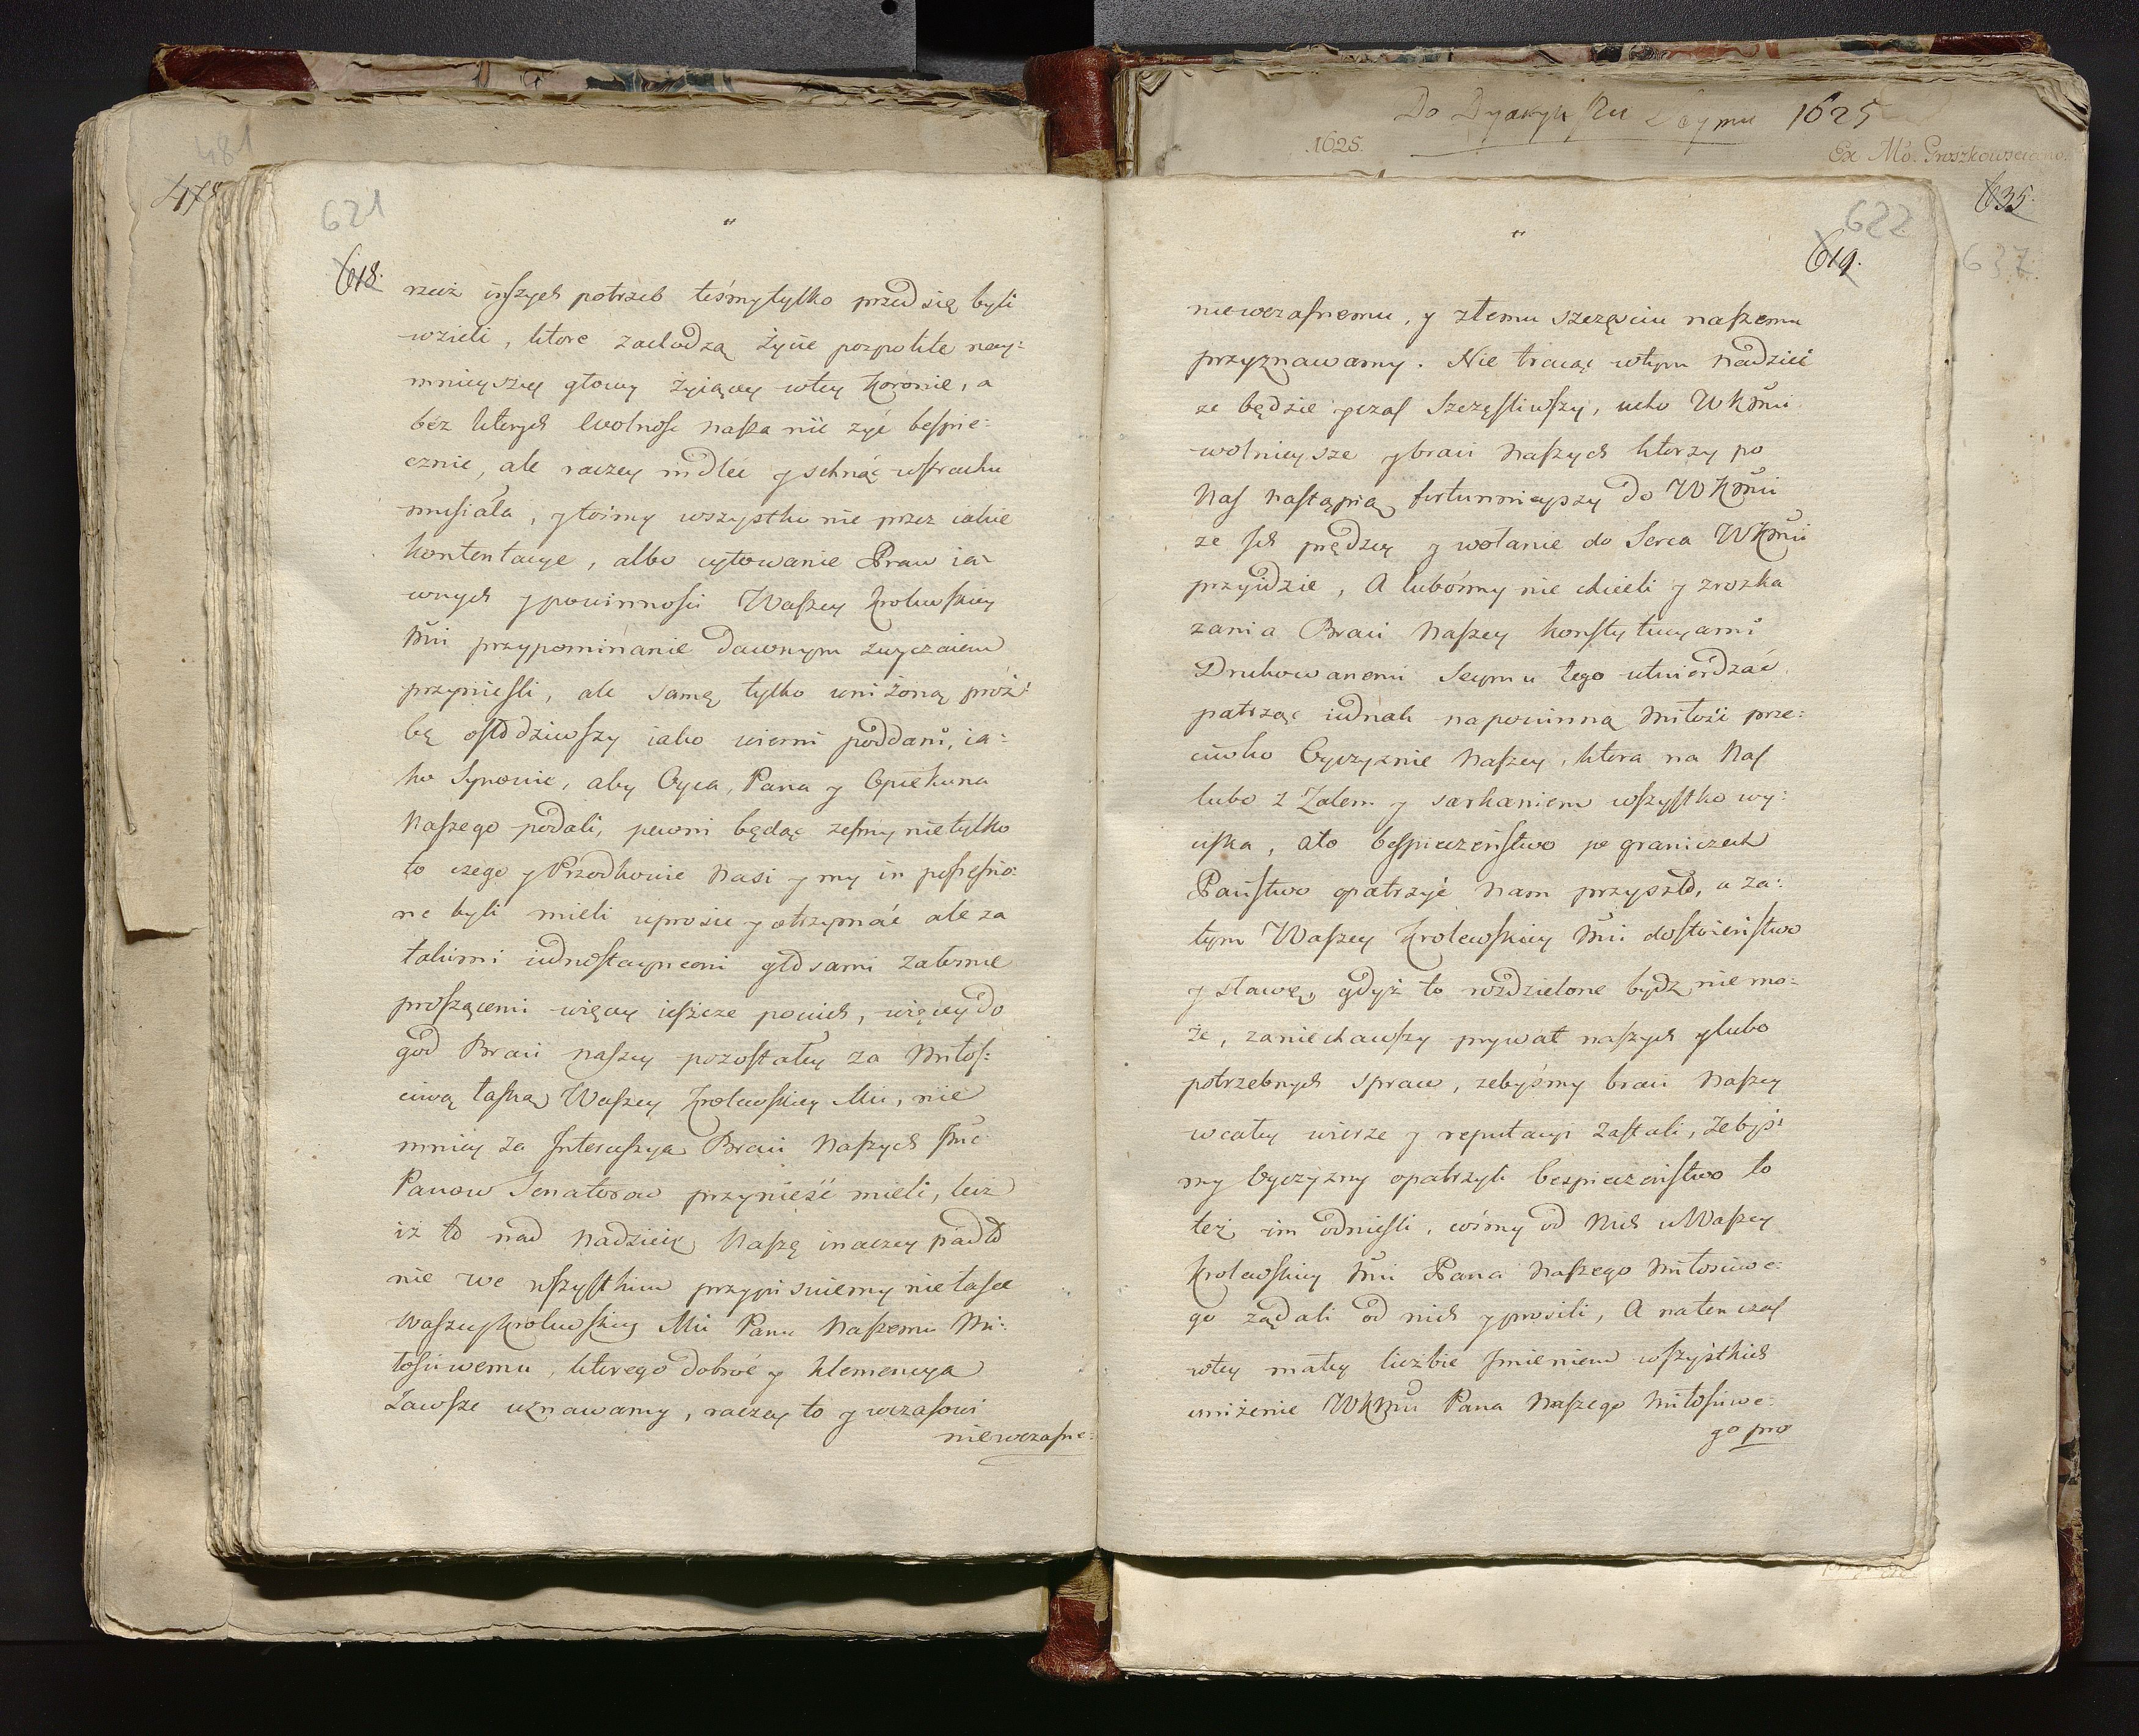 481
478
621
618.
rzecz inszych potrzeb teśmy tylko przed się byli
wzieli, ktore zachodzą życie pospolite nay:
mnieyszey głowy żyiącey wtey Koronie, a
béz ktorych Wolność nasza nie żyć bespie:
cznie, ale raczey mdleć y schnąć wstrachu
musiała, y tośmy wszystko nie przez iakie
kontentacye, albo cytowanie Praw ia:
wnych y powinności Waszey Krolewskiey
Mći przypominanie dawnym zwyczaiem
przynieśli, ale samą tylko uniżoną proź:
bę osłodziwszy iako wierni poddani, ia:
ko Synowie, aby Oyca, Pana y Opiekuna
Naszego podali, pewni będąc zesmy nietylko
to czego y Przodkowie Nasi y my in possessio:
ne byli mieli uprosić y otrzymać ale za
takiemi iednostaynemi głosami zatwme
proszącemi więcey ieszcze pociech, więcey do
god Braci naszey pozostałey za Miłoś:
ciwą łaską Waszey Krolewskiey Mći, nie
mniey za Intercessya Braci Naszych Jmć
Panow Senatorow przynieść mieli, lecz
iż to nad nadzieię Naszę inaczey padło
nie we wszystkim przypisuiemy niełasce
Waszey Krolewskiey Mći Panu Naszemu Mi:
łościwemu, ktorego dobroć y klemencya
Zawsze uznawamy, raczey to y wczasowi
niewczasne:
Do Dyaryu Zu Seymu 1625
1625.
Ex Mo. Proszkowsciano.
635.
637.
622
619.
niewczasnemu, y złemu szczęściu naszemu
przyznawamy. Nie tracąc wtym nadziei
ze będzie y czas Szczęśliwszy, ucho WKMći
wolnieysze y braci Naszych ktorzy po
Nas nastąpią fortunnieyszy do WKMći
ze ich prędzey y wołanie do Serca WKMći
przyidzie, A lubośmy nie chcieli y zrozka
zania Braci Naszey konstytucyami
Drukowanemi Seymu tego utwierdzać
patrząc iednak na powinną miłość prze:
ciwko Oyczyznie Naszey, ktora na Nas
lubo z Zalem y sarkaniem wszystko wy:
ciska, ato bespieczeństwo po graniczech
Państwo opatrzyć Nam przyszło, a za:
tym Waszey Krolewskiey Mći dostoieństwo
y sławę, gdyż to rozdzielone bydz nie mo:
że, zaniechawszy prywat naszych y lubo
potrzebnych spraw, zebyśmy braci Naszey
wcałey wierze y reputacyi Zastali, Zebyś:
my Oyczyzny opatrzyli bezpieczeństwo to
też im odnieśli, cośmy od Nich u Waszey
Krolewskiey Mći Pana Naszego Miłościwe:
go żądali od nich y prosili, A natenczas
wtey małey liczbie Jmieniem wszystkich
uniżenie WKMći Pana Naszego Miłościwe:
go pro